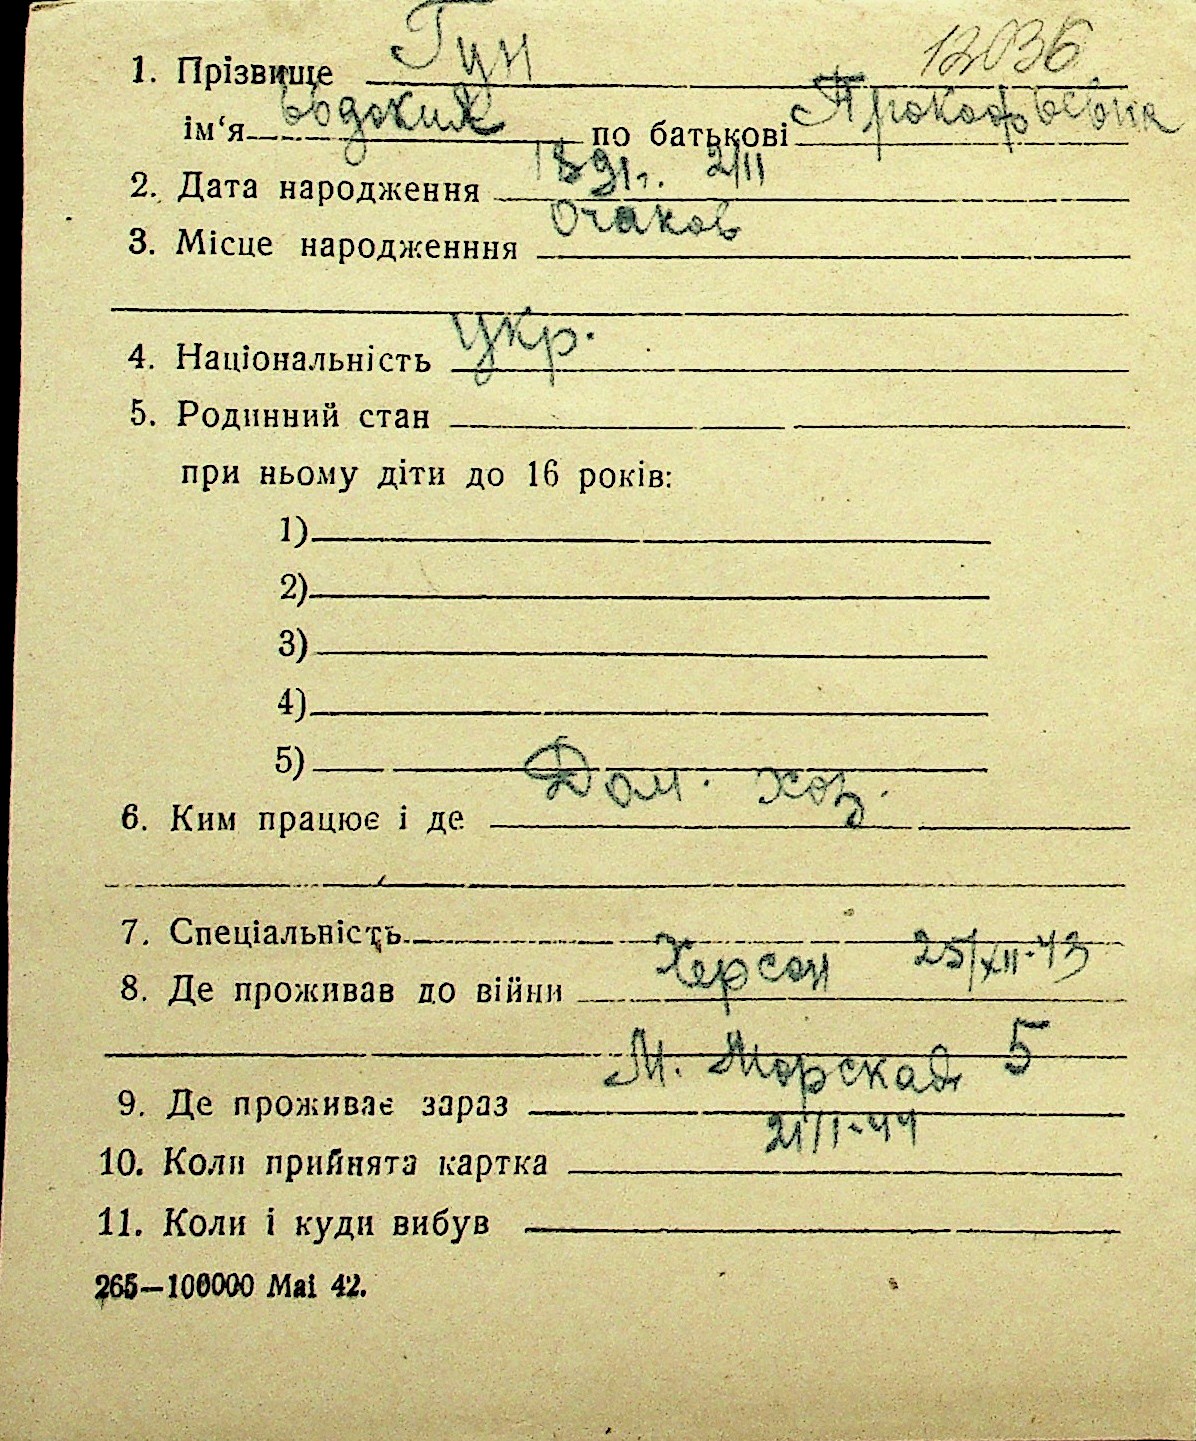 12036
1. Прізвище Гун
ім‘я Евдокия по батькові Прокофьевна
2. Дата народження 1891г. 2/II
3. Місце народженння Очаков
4. Національність Укр.
5. Родинний стан
при ньому діти до 16 років:
1)
2)
3)
4)
5)
6. Ким працює і де Дом. хоз.
7. Спеціальність
8. Де проживав до війни Херсон 25/XII-43
9. Де проживає зараз М. Морская 5
10. Коли прийнята картка 21/I-44
11. Коли і куди вибув
265—100000 Mai 42.